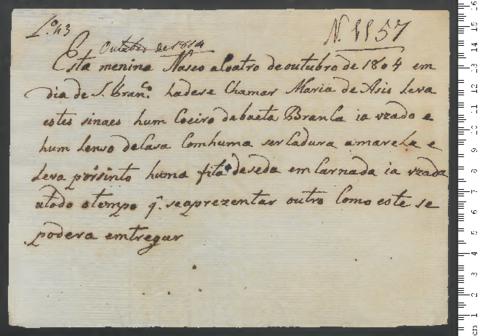 L.º 43
N. 1157
Outubro de 1804
Esta menina Naseo a coatro de outubro de 1804 em
dia de S. Fran.co hadese Chamar Maria de Asis leva
estes sinaes hum Coeiro de baeta Branca ia uzado e
hum lenso de Casa Com huma serCadura amarela e
leva por sinto huma fita de seda emCarnada ia uzada
a todo o tempo q. se aprezentar outro Como este se
podera emtregar